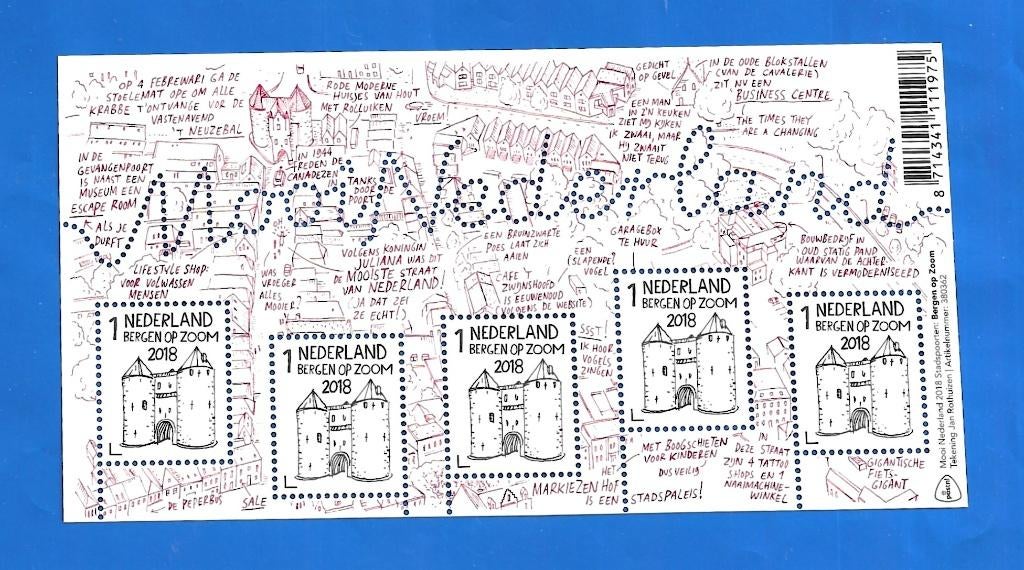 OP 4 FEBREWARI GA DE
STOELEMAT OPE OM ALLE
KRABBE T'ONTVANGE VOR DE
VASTENAVEND
'T NEUZEBAL
RODE MODERNE
HUISJES VAN HOUT
MET ROLLUIKEN
VROEM!
GEDICHT
OP GEVEL
EEN MAN
IN Z'N KEUKEN
ZIET MIJ KIJKEN
IK ZWAAI, MAAR
HIJ ZWAAIT
NIET TERUG
IN DE OUDE BLOKSTALLEN
(VAN DE CAVALERIE)
ZIT NU EEN
BUSINESS CENTRE
THE TIMES THEY
ARE A CHANGING
8 714341 111975
IN DE
GEVANGENPOORT
IS NAAST EEN
MUSEUM EEN
ESCAPE ROOM
ALS JE
DURFT
IN 1944
REDEN DE
CANADEZEN
IN
TANKS
DOOR DE
POORT
Mooi Nederland
LIFESTYLE SHOP:
VOOR VOLWASSEN
MENSEN
WAS
VROEGER
ALLES
MOOIER?
VOLGENS KONINGIN
JULIANA WAS DIT
DE MOOISTE STRAAT
VAN NEDERLAND!
JA DAT ZEI
ZE ECHT!
EEN BRUINZWARTE
POES LAAT ZICH
AAIEN
CAFE 'T
ZWIJNSHOOFD
IS EEUWENOUD
(VOLGENS DE WEBSITE)
EEN
(SLAPENDE)
VOGEL
GARAGEBOX
TE HUUR
BOUWBEDRIJF IN
OUD STATIG PAND
WAARVAN DE ACHTER
KANT IS VERMODERNISEERD
SSST!
IK HOOR
VOGELS
ZINGEN
1 NEDERLAND
BERGEN OP ZOOM
2018
1 NEDERLAND
BERGEN OP ZOOM
2018
1 NEDERLAND
BERGEN OP ZOOM
2018
1 NEDERLAND
BERGEN OP ZOOM
2018
1 NEDERLAND
BERGEN OP ZOOM
2018
DE PEPERBUS
SALE
HET
MARKIEZENHOF
IS EEN
STADSPALEIS!
MET BOOGSCHIETEN
VOOR KINDEREN
DUS VEILIG
IN
DEZE STRAAT
ZIJN 4 TATTOO
SHOPS EN 1
NAAIMACHINE-
WINKEL
GIGANTISCHE
FIETS-
GIGANT
Mooi Nederland 2018 Stadspoorten: Bergen op Zoom
Tekening Jan Rothuizen | Artikelnummer: 380362
postnl